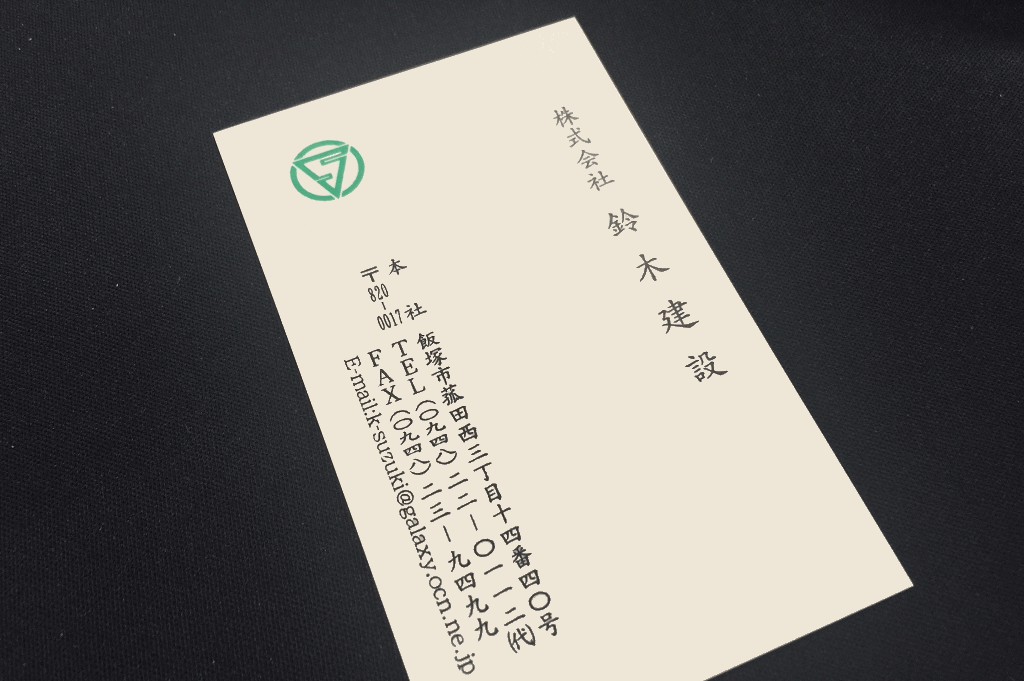 株式会社 鈴木建設
本社 飯塚市菰田西三丁目十四番四〇号
〒820-0017 TEL(〇九四八)二二-〇一一二(代)
FAX(〇九四八)二三-九四九九
E-mail:k-suzuki@galaxy.ocn.ne.jp